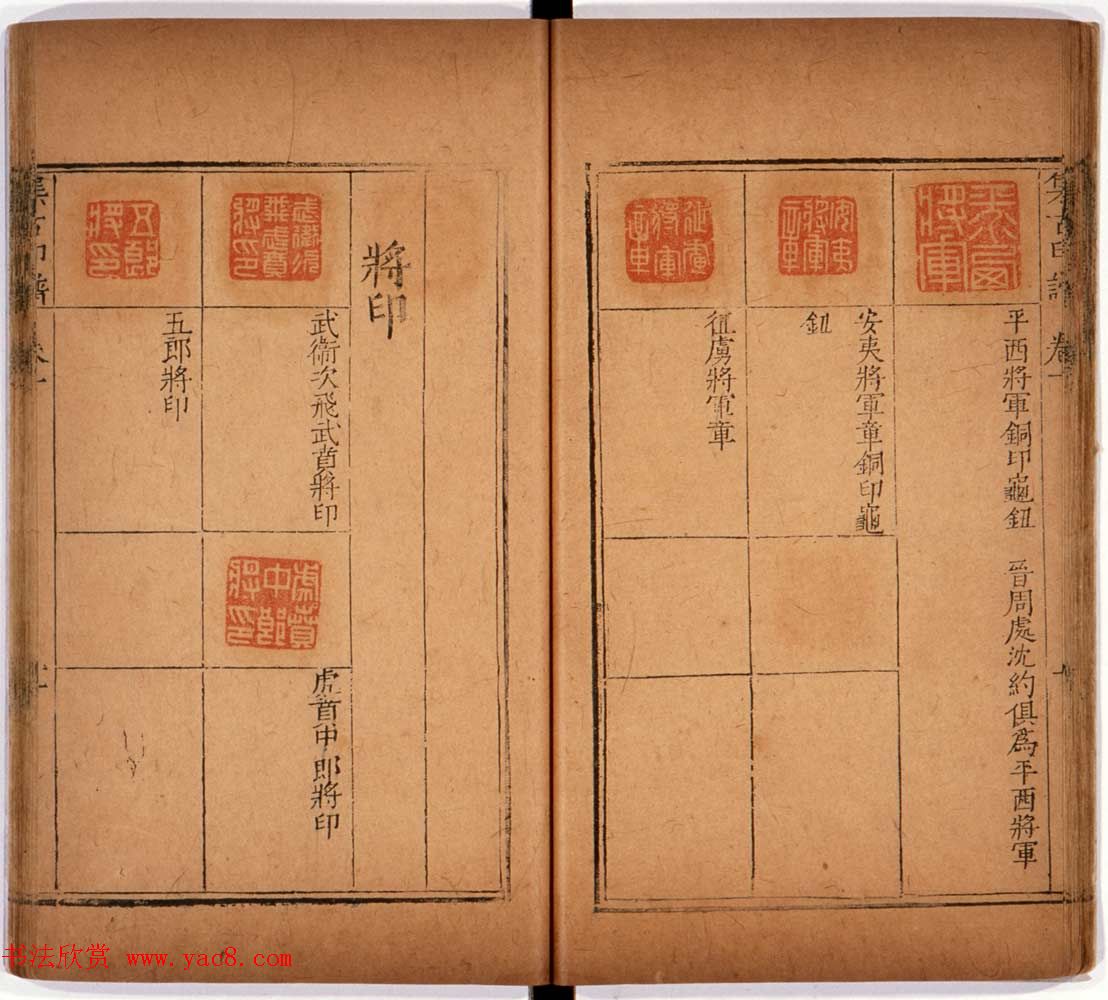 集古印譜 卷一
平西將軍
平西將軍銅印龜鈕 晉周處沈約俱為平西將軍
安夷將軍章
安夷將軍章銅印龜
鈕
征虜將軍章
征虜將軍章
將印
武衛次飛武賁將印
虎賁中郎將印
虎賁中郎將印
五郎將印
五郎將印
集古印譜 卷一
书法欣赏 www.yac8.com